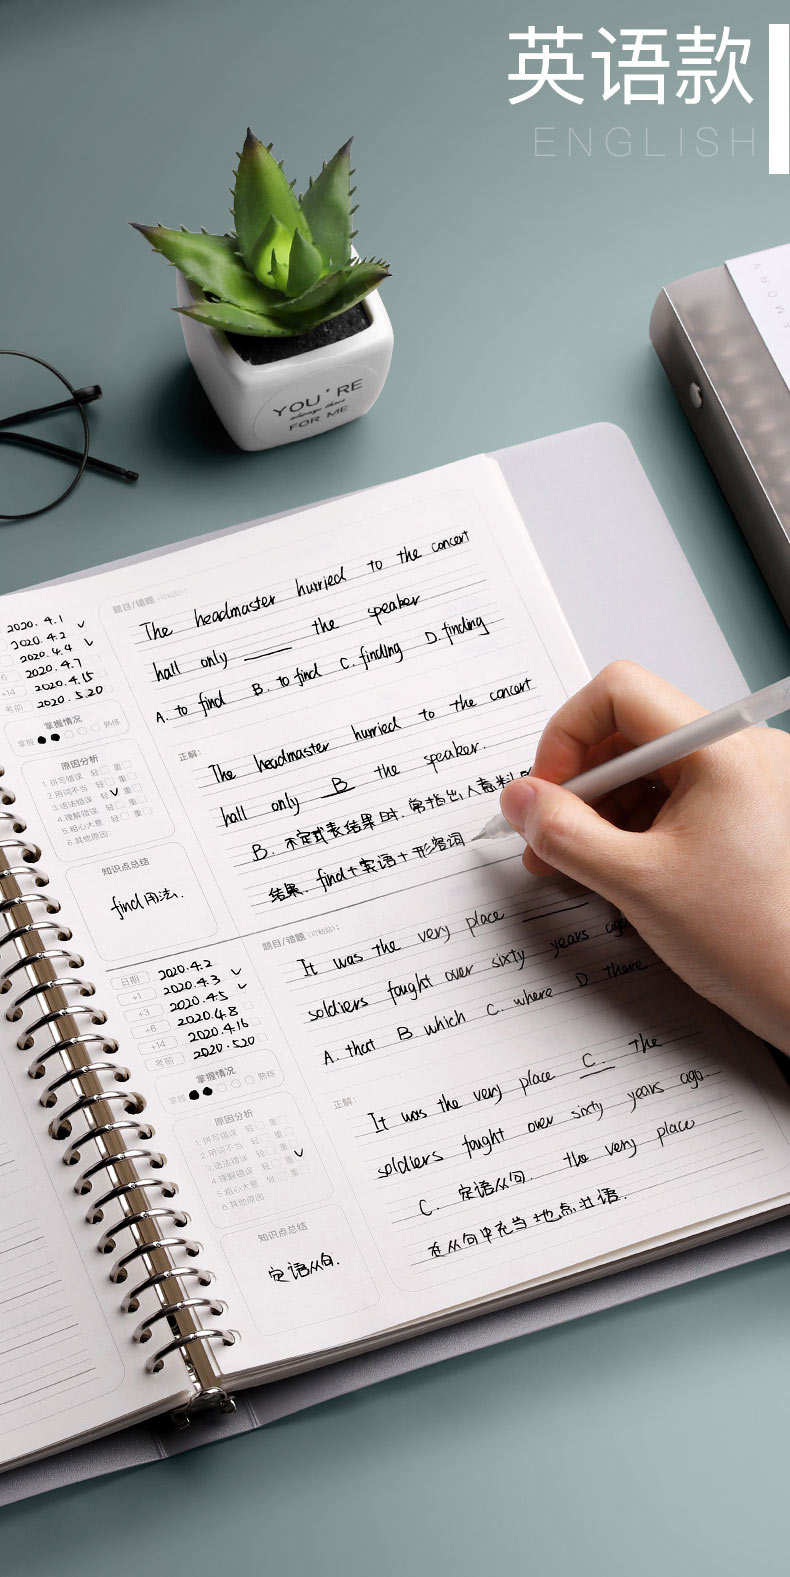 英语款
ENGLISH
EMORY
YOU'RE
always there
FOR ME
2020.4.1
2020.4.2
2020.4.4
+6 2020.4.7
+14 2020.4.15
考前 2020.5.20
掌握情况
掌握 熟练
原因分析
1.拼写错误 轻 重
2.用词不当 轻 重
3.语法错误 轻 重
4.理解错误 轻 重
5.粗心大意 轻 重
6.其他原因:
知识点总结
find用法.
题目/错题(可粘贴):
The headmaster hurried to the concert
hall only ____ the speaker
A. to find B. to find C. finding D. finding
正解:
The headmaster hurried to the concert
hall only B the speaker.
B. 不定式表结果时,常指出人意料的
结果. find+宾语+形容词
日期 2020.4.2
+1 2020.4.3
+3 2020.4.5
+6 2020.4.8
+14 2020.4.16
考前 2020.5.20
掌握情况
掌握 熟练
原因分析
1.拼写错误 轻 重
2.用词不当 轻 重
3.语法错误 轻 重
4.理解错误 轻 重
5.粗心大意 轻 重
6.其他原因:
知识点总结
定语从句.
题目/错题(可粘贴):
It was the very place ____
soldiers fought over sixty years ago
A. that B which C. where D there
正解:
It was the very place C. The
soldiers fought over sixty years ago.
C. 定语从句. the very place
在从句中充当地点状语.